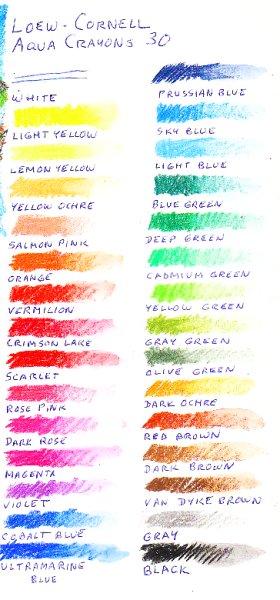 LOEW-CORNELL
AQUA CRAYONS 30
WHITE
LIGHT YELLOW
LEMON YELLOW
YELLOW OCHRE
SALMON PINK
ORANGE
VERMILION
CRIMSON LAKE
SCARLET
ROSE PINK
DARK ROSE
MAGENTA
VIOLET
COBALT BLUE
ULTRAMARINE
BLUE
PRUSSIAN BLUE
SKY BLUE
LIGHT BLUE
BLUE GREEN
DEEP GREEN
CADMIUM GREEN
YELLOW GREEN
GRAY GREEN
OLIVE GREEN
DARK OCHRE
RED BROWN
DARK BROWN
VAN DYKE BROWN
GRAY
BLACK